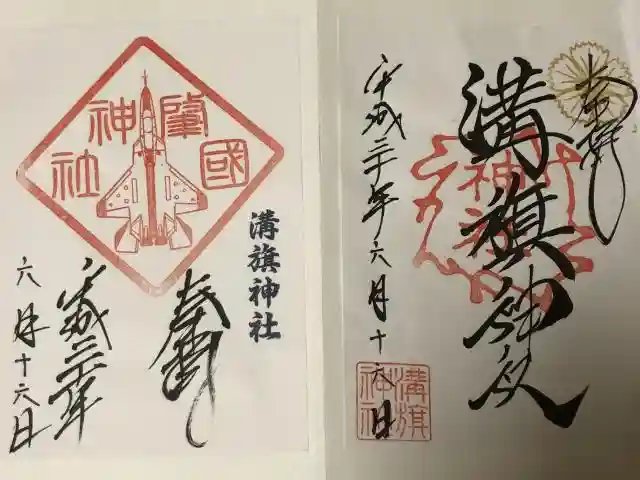 奉拝
溝旗神社
平成三十年六月十六日
溝旗
神社
肇國
神社
溝旗神社
奉拝
平成三十年
六月十六日